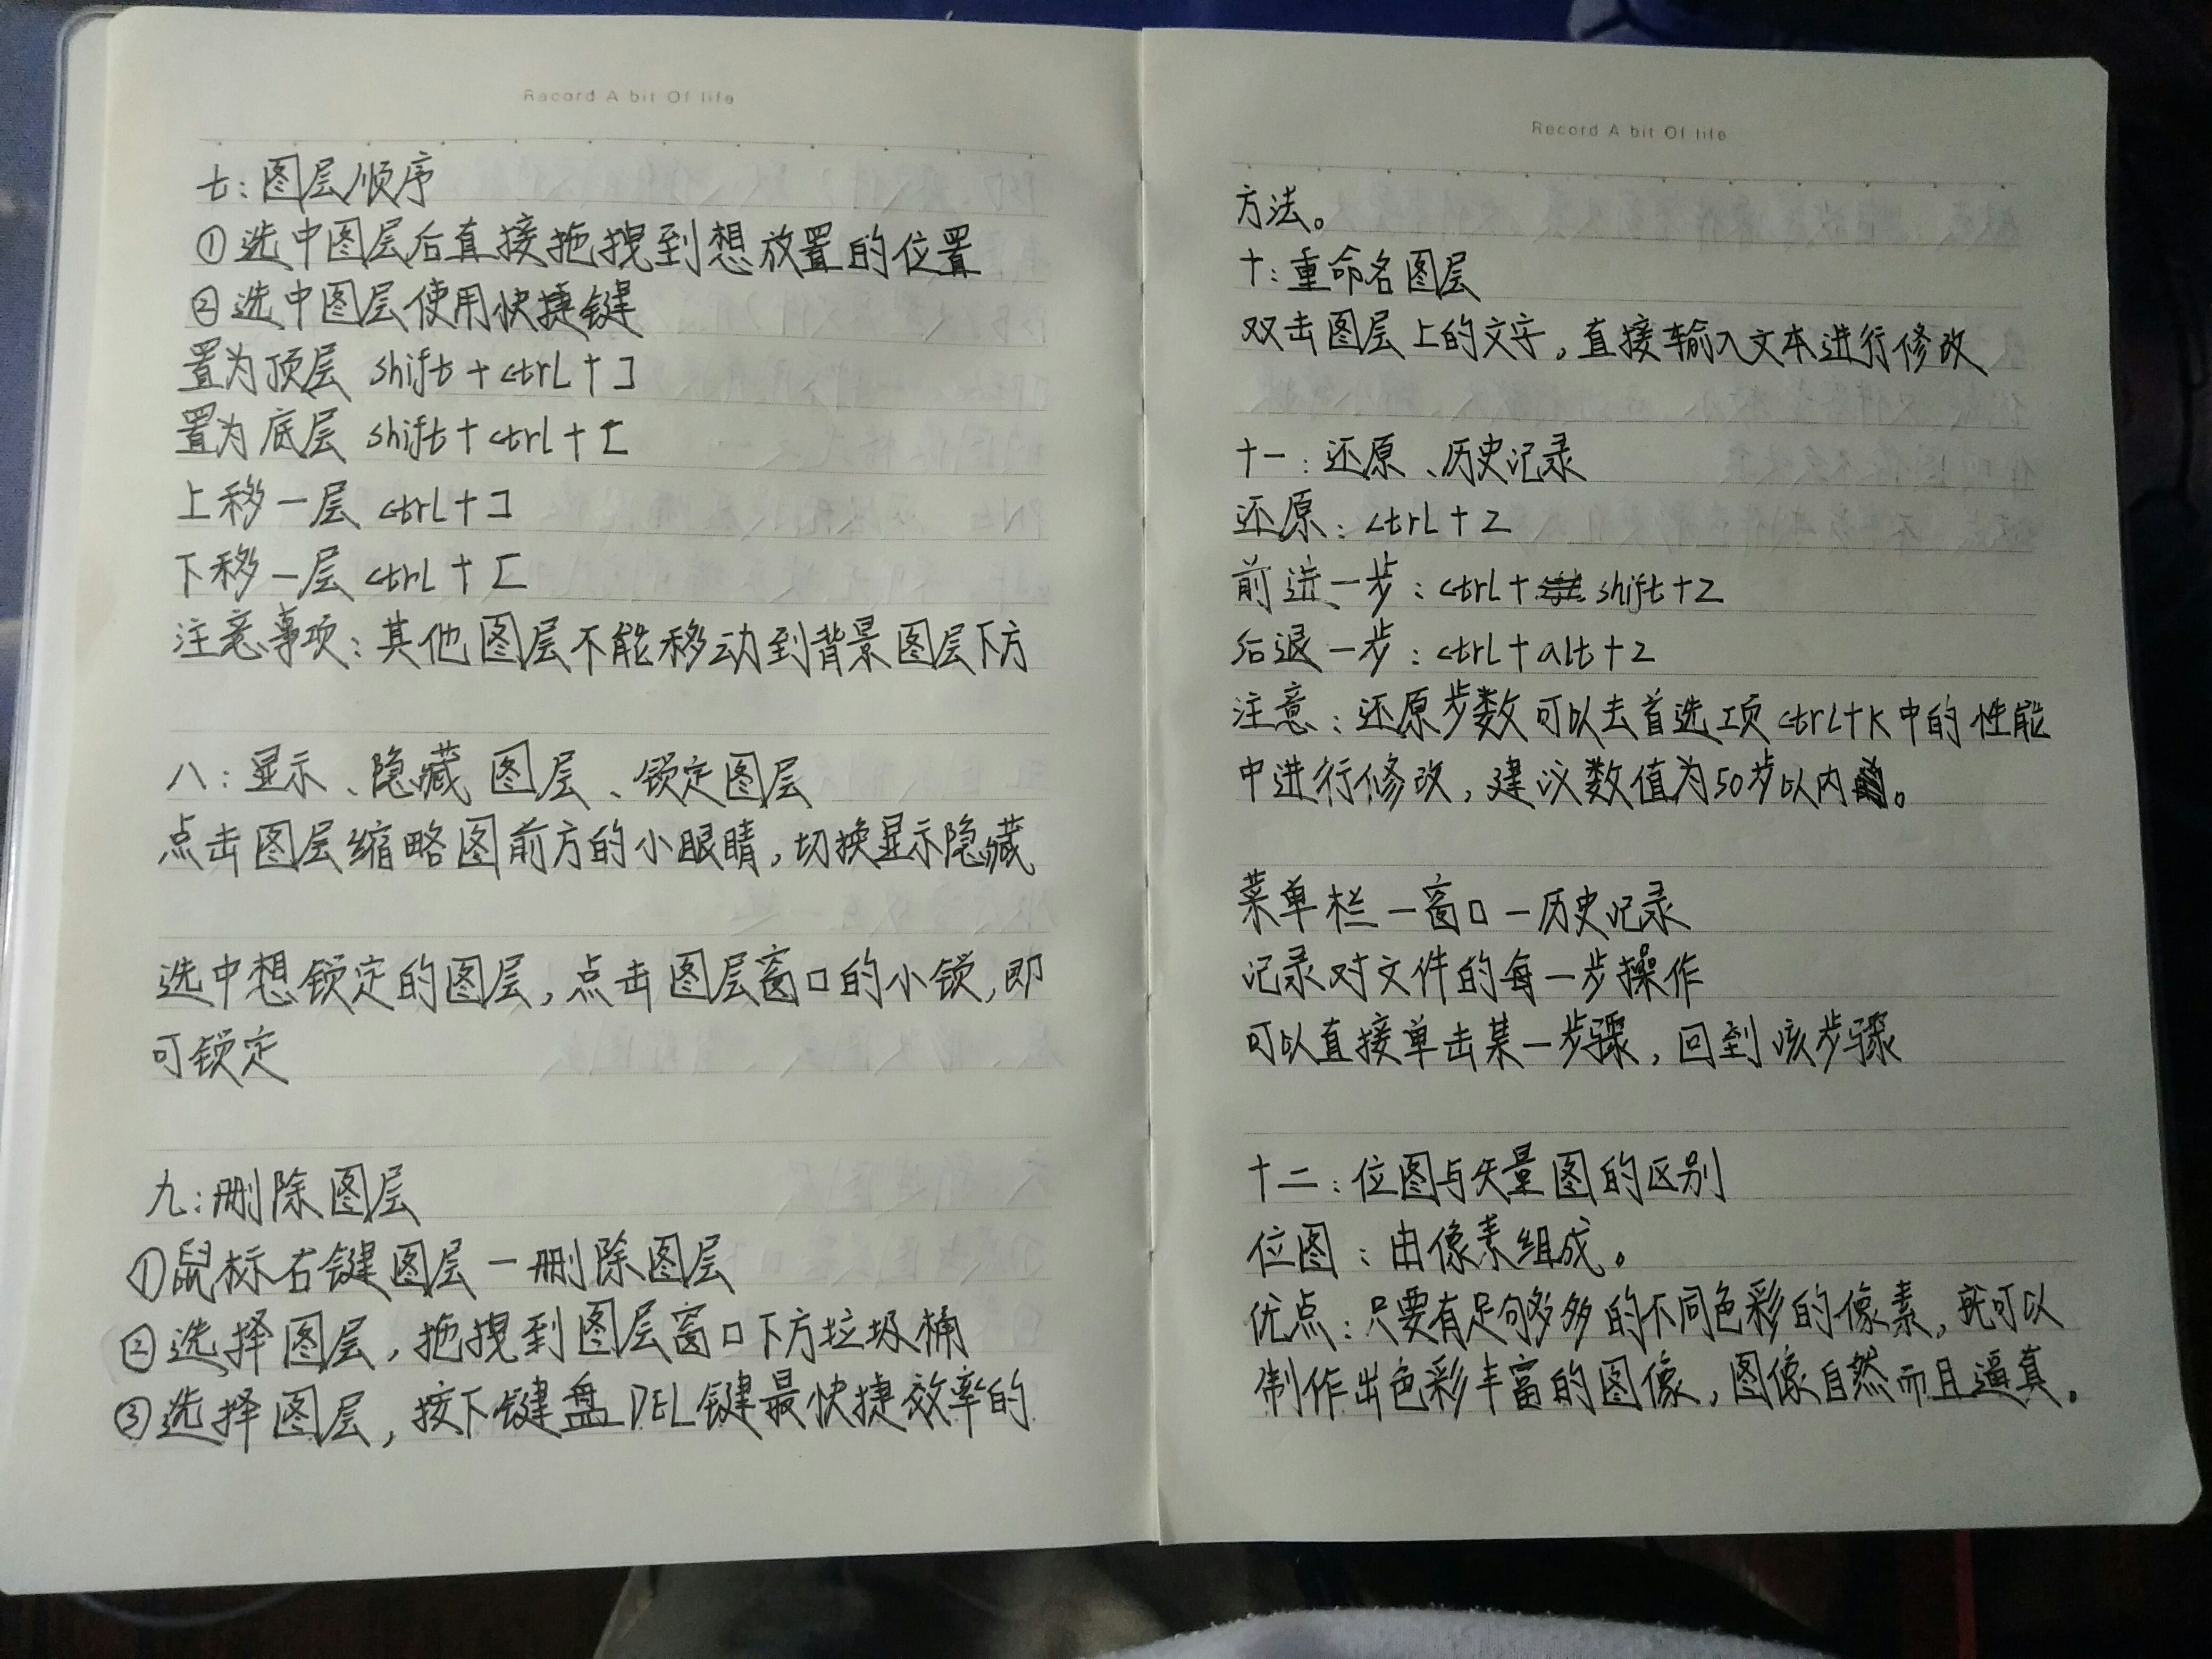 Racord A bit Of life
七:图层顺序
①选中图层后直接拖拽到想放置的位置
②选中图层使用快捷键
置为顶层 shift+ctrl+]
置为底层 shift+ctrl+[
上移一层 ctrl+]
下移一层 ctrl+[
注意事项:其他图层不能移动到背景图层下方
八:显示、隐藏图层、锁定图层
点击图层缩略图前方的小眼睛,切换显示隐藏
选中想锁定的图层,点击图层窗口的小锁,即
可锁定
九:删除图层
①鼠标右键图层一删除图层
②选择图层,拖拽到图层窗口下方垃圾桶
③选择图层,按下键盘DEL键最快捷效率的
Record A bit Of life
方法。
十:重命名图层
双击图层上的文字。直接输入文本进行修改
十一:还原、历史记录
还原:ctrl+z
前进一步:ctrl+shift+z
后退一步:ctrl+alt+z
注意:还原步数可以去首选项ctrl+k中的性能
中进行修改,建议数值为50步以内。
菜单栏一窗口一历史记录
记录对文件的每一步操作
可以直接单击某一步骤,回到该步骤
十二:位图与矢量图的区别
位图:由像素组成。
优点:只要有足够多的不同色彩的像素,就可以
制作出色彩丰富的图像,图像自然而且逼真。